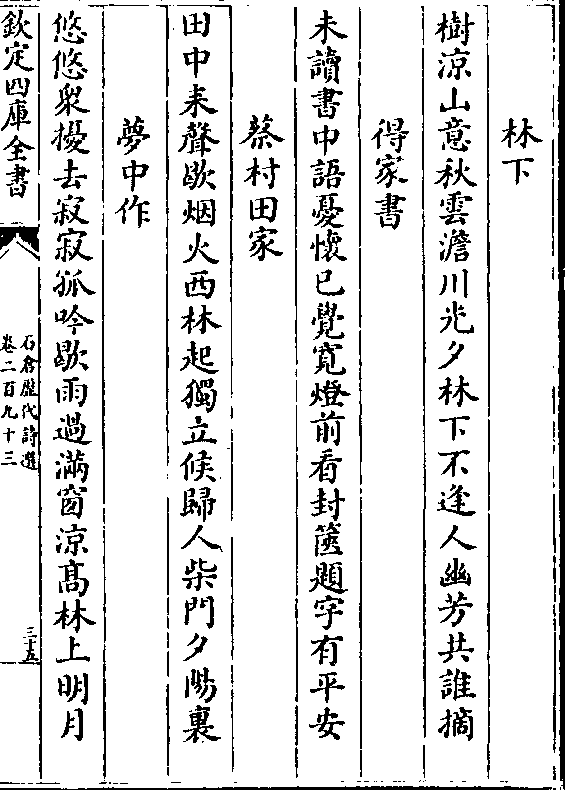 林下
樹涼山意秋雲澹川光夕林下不逢人幽芳共誰摘
得家書
未讀書中語憂懷已覺寛燈前看封篋題字有平安
蔡村田家
田中耒聲歇烟火西林起獨立候歸人柴門夕陽裏
夢中作
悠悠衆擾去寂寂孤吟歇雨過滿窗涼髙林上明月
欽定四庫全書
石倉歷代詩選
卷二百九十三
三十五